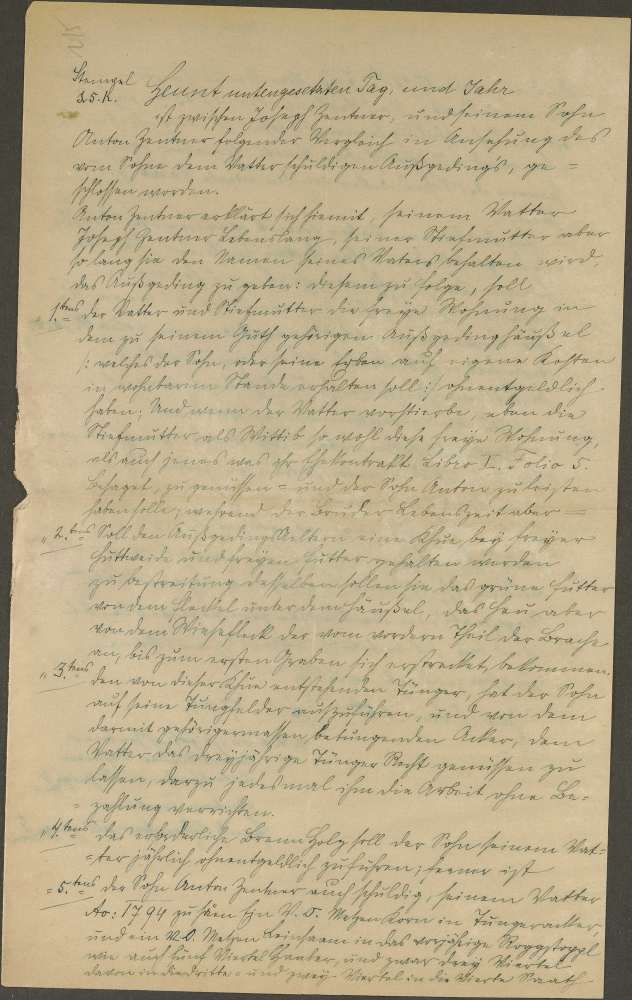 Stempel
3.5.K.
Heunt untengesetzten Tag, und Jahr
ist zwischen Joseph Zentner, und seinem Sohn
Anton Zentner folgender Vergleich in Ansehung des
vom Sohne dem Vatter schuldigen Außgedings, ge =
schlossen worden.
Anton Zentner erklärt sich hiemit, seinem Vatter
Joseph Zentner Lebenslang, seiner Stiefmutter aber
so lang sie den Namen seines Vaters behalten wird,
das Außgeding zu geben: diesem zu folge, soll
1.tens der Vatter und Stiefmutter die freye Wohnung in
dem zu seinem Guth gehörigen Außgedinghäußel
/: welches der Sohn, oder seine Erben auf eigene Kosten
in wohnbarem Stande erhalten soll :/ ohnentgeldlich
haben; Und wenn der Vatter vorstierbe, eben die
Stiefmutter als Wittib so wohl diese freye Wohnung,
als auch jenes was ihr Ehekontrakt Libro I. Folio 5.
besaget, zu genüssen = und der Sohn Anton zu leisten
haben solle; während der Lebenszeit aber =
2.tens Soll den Außgedingsältern eine Khue bey freyer
Huttweide und freyem Futter gehalten werden
zu bestreitung desselben sollen sie das grüne Futter
von dem Fleckel unter dem Häußel, das Heu aber
von dem Wiesefleck der vom vordern Theil der Brache
an, bis zum ersten Graben sich erstrecket, bekommen.
3.tens den von dieser Khue entstehenden Tünger, hat der Sohn
auf seine Tungfelder auszuführen, und von dem
darmit gehörigermassen betungenden Acker, dem
Vatter das dreyjährige Tünger Recht genüssen zu
lassen, darzu jedesmal ihm die Arbeit ohne Be-
= zahlung verrichten.
4.tens Das erforderliche Brennholz soll der Sohn seinem Vat-
=ter jährlich ohnentgeldlich zuführen; ferner ist
5.tens der Sohn Anton Zentner auch schuldig, seinem Vatter
Ao: 1794 zu säen Ein N.Ö. Metzen Korn in Tüngeracker,
und ein N.Ö. Metzen Leinsaam in das vorjährige Roggstoppl
wie auch fünf Viertel Haaber, und zwar drey Viertel
davon in die dritte = und zwey Viertel in die Vierte Saath